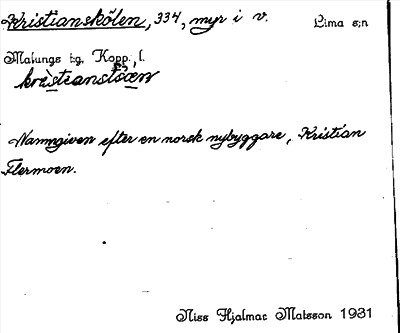 Kristianskölen, 334, myr i v. Lima s:n
Malungs tg, Kopp. l.
Namngiven efter en norsk nybyggare, Kristian
Flermoen.
Niss Hjalmar Matsson 1931